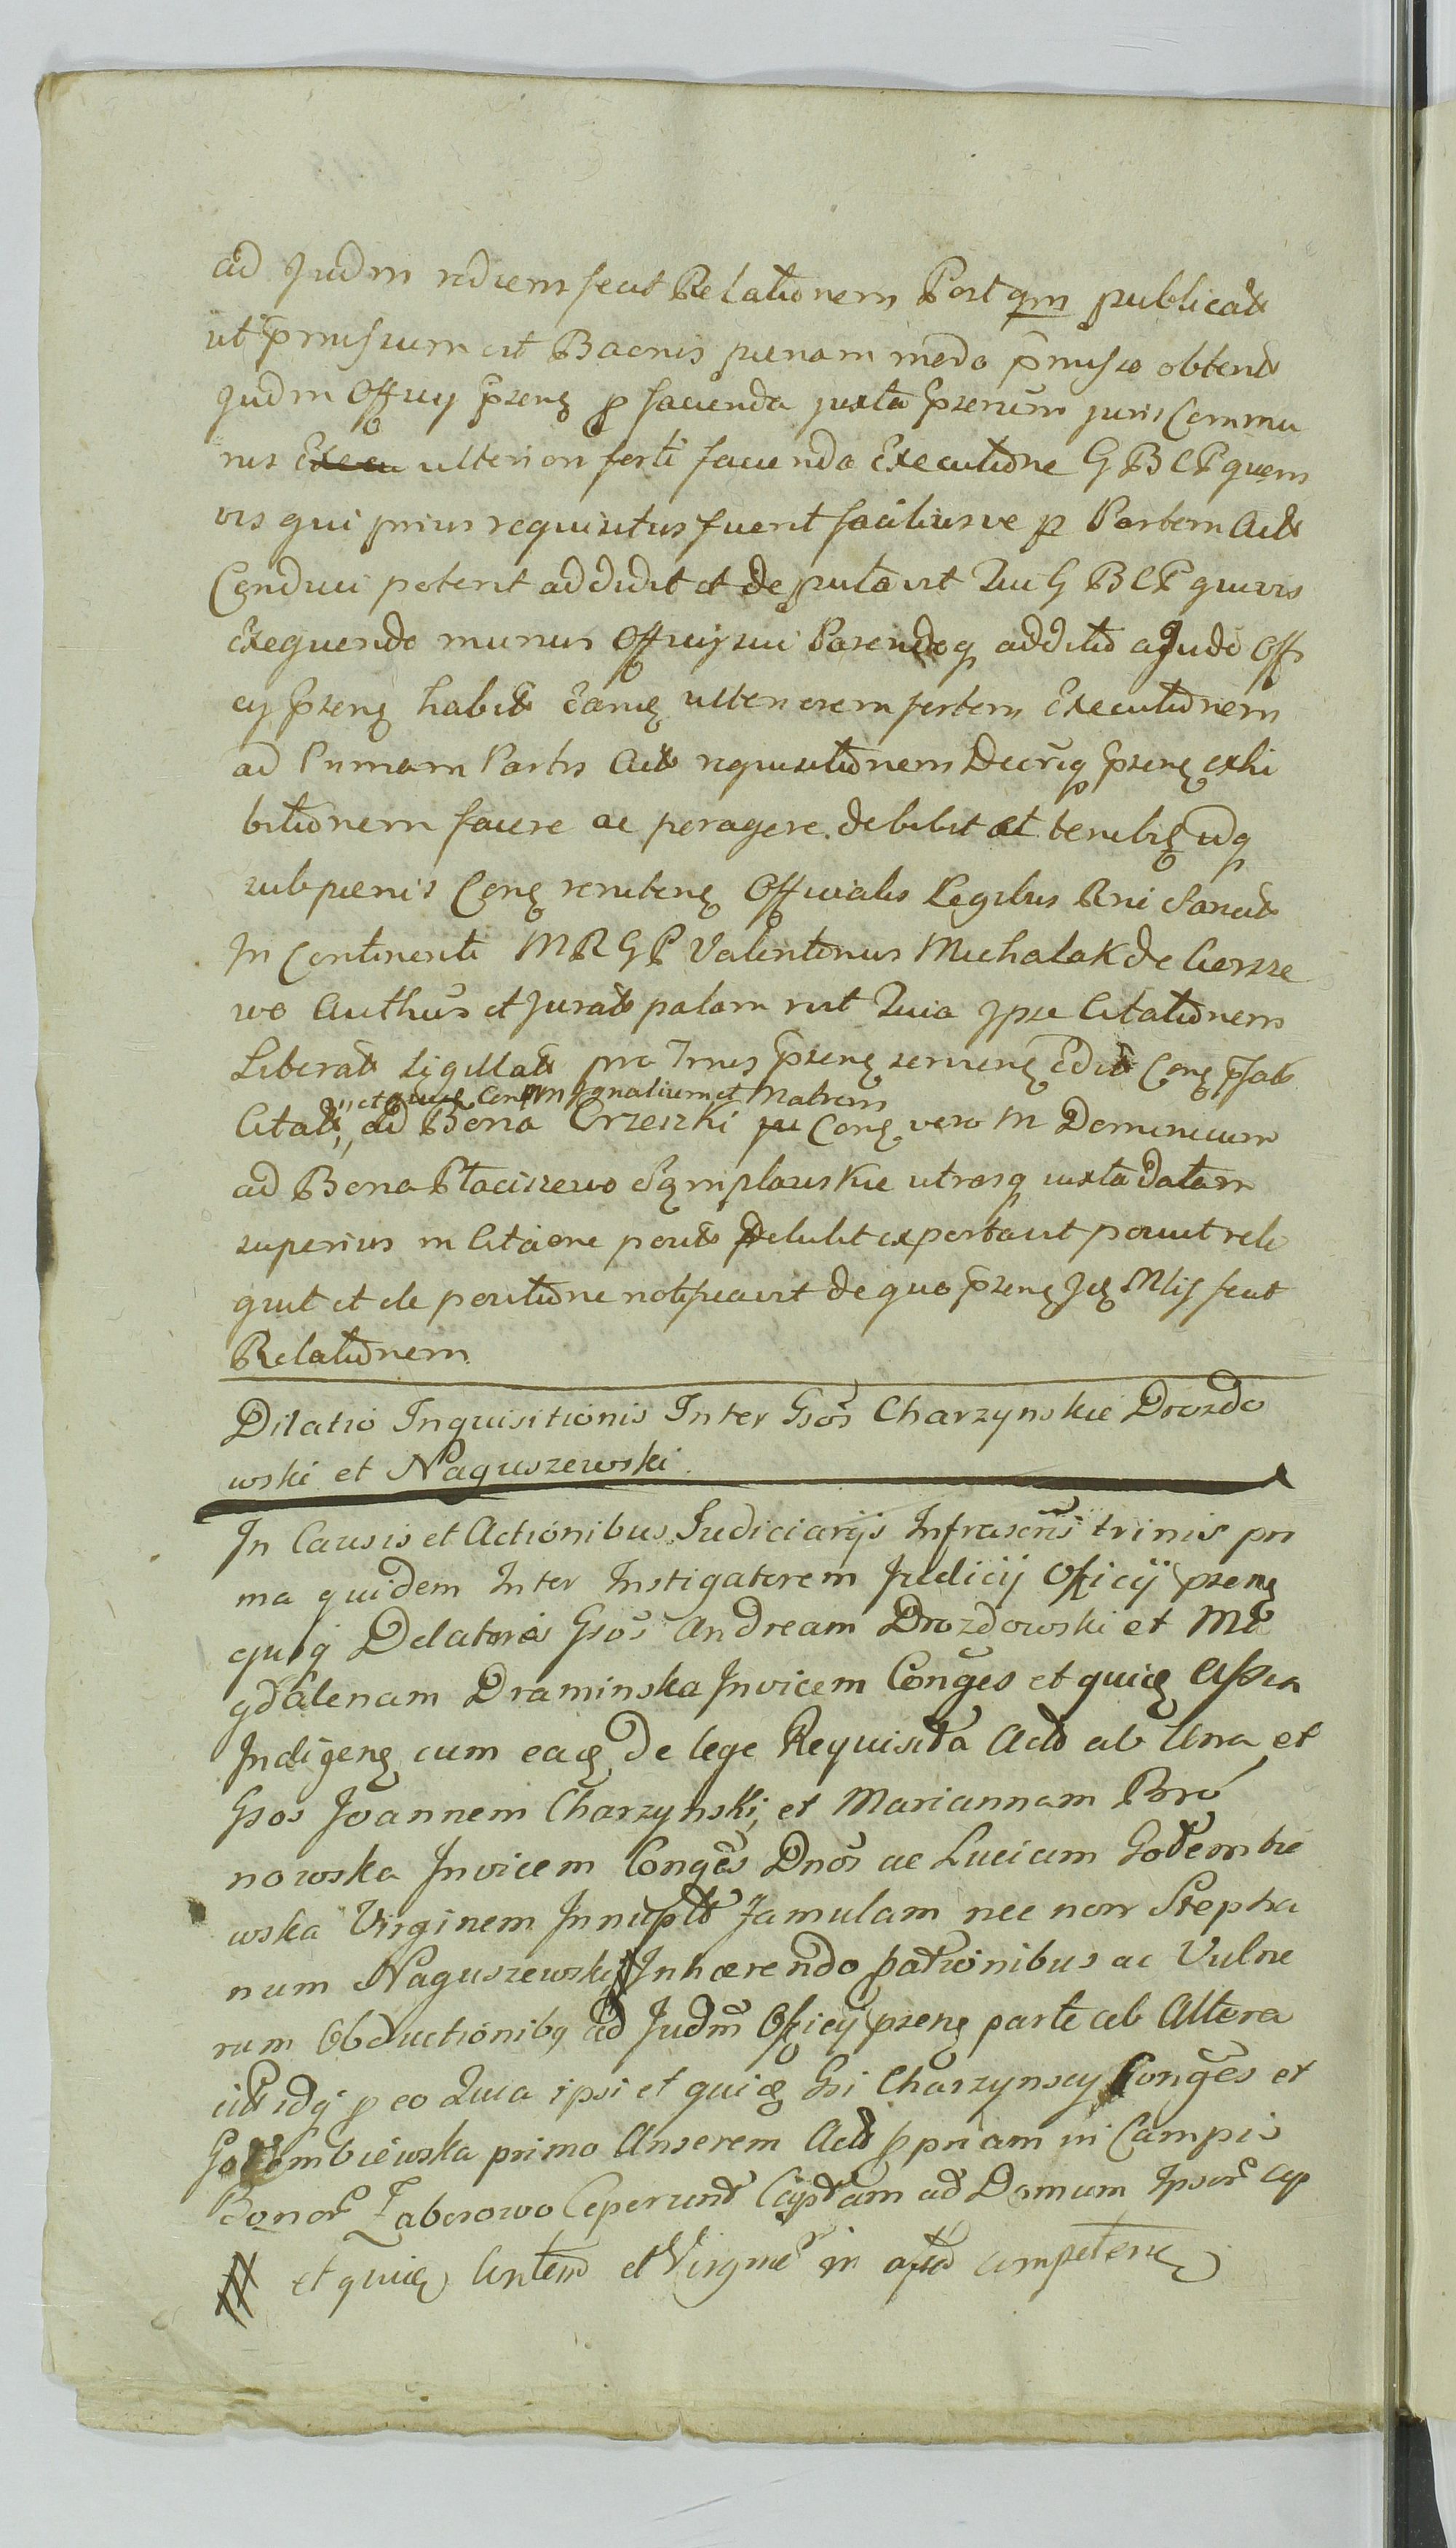 ad Judm rediens fecit Relationem Post qm publicat
ut pmissum est Baonis pœnam modo pmisso obtent
Judm Officy pseng p facienda juxta pserum juris Commu
nis Execu ulteriori forti facienda Executione GBCP quem
vis qui prius requisitus fuerit faciliusve p Partem Act
Conduci poterit addidit et deputavit Qui G BCP quivis
Exequendo munus Officy sui Parendoq additio a Judo Offi
cy pseng habit Eamq ulteriorem fortem Executionem
ad Primam Partis Act requisitionem Decriq pseng exhi
bitionem facere ac peragere debebit et tenebit idq
sub pœnis Cong reniteng Officialis Legibus Rni Sancit
In Continenti MRGP Valentinus Michalak de Ciersze
wo Authus et Jurat palam rect Quia ipse Citationem
Liberat Sigillat pro Trnis pseng servieng Edit Cong pfat
et quicq Conim Ignatium et Matrem
Citat ad Bona Orzeszki Cong vero M Dominicum
ad Bona Placiszewo Szmplawskie utrosq iuxta datam
superius in Citaone posit detulit exportavit posuit reli
quit et de positione notificavit de quo pseng Jcq Mlis fecit
Relationem
Dilatio Inquisitionis Inter Gsos Charzynskie Drozdo
wski et Naguszewski
In Causis et Actionibus Judiciarijs Infrascris trinis pri
ma quidem Inter Instigatorem Judicij Oficij pseng
ejusq Delatores Gsos Andream Drozdowski et Ma
gdalenam Draminska Invicem Conges et quicq Assia
Indigeng cum eacq de lege Requisita Act ab Una et
Gsos Joannem Charzynski et Mariannam Bro
nowska Invicem Conges Dnos ac Luciam Golembie
wska Virginem Innupt Famulam nec non Stepha
num Naguszewski # Inhærendo pationibus ac Vulne
rum Obductionibq ad Judm Oficij pseng parte ab Altera
cit idq p eo Quia ipsi et quicq Gsi Charzynscy Conges et
Golembiewska primo Anserem Act ppriam in Campis
Bonor Zaborowo Ceperunt Captam ad Domum Ipsor cap
# et quicq Content et Virgine in assa competeng